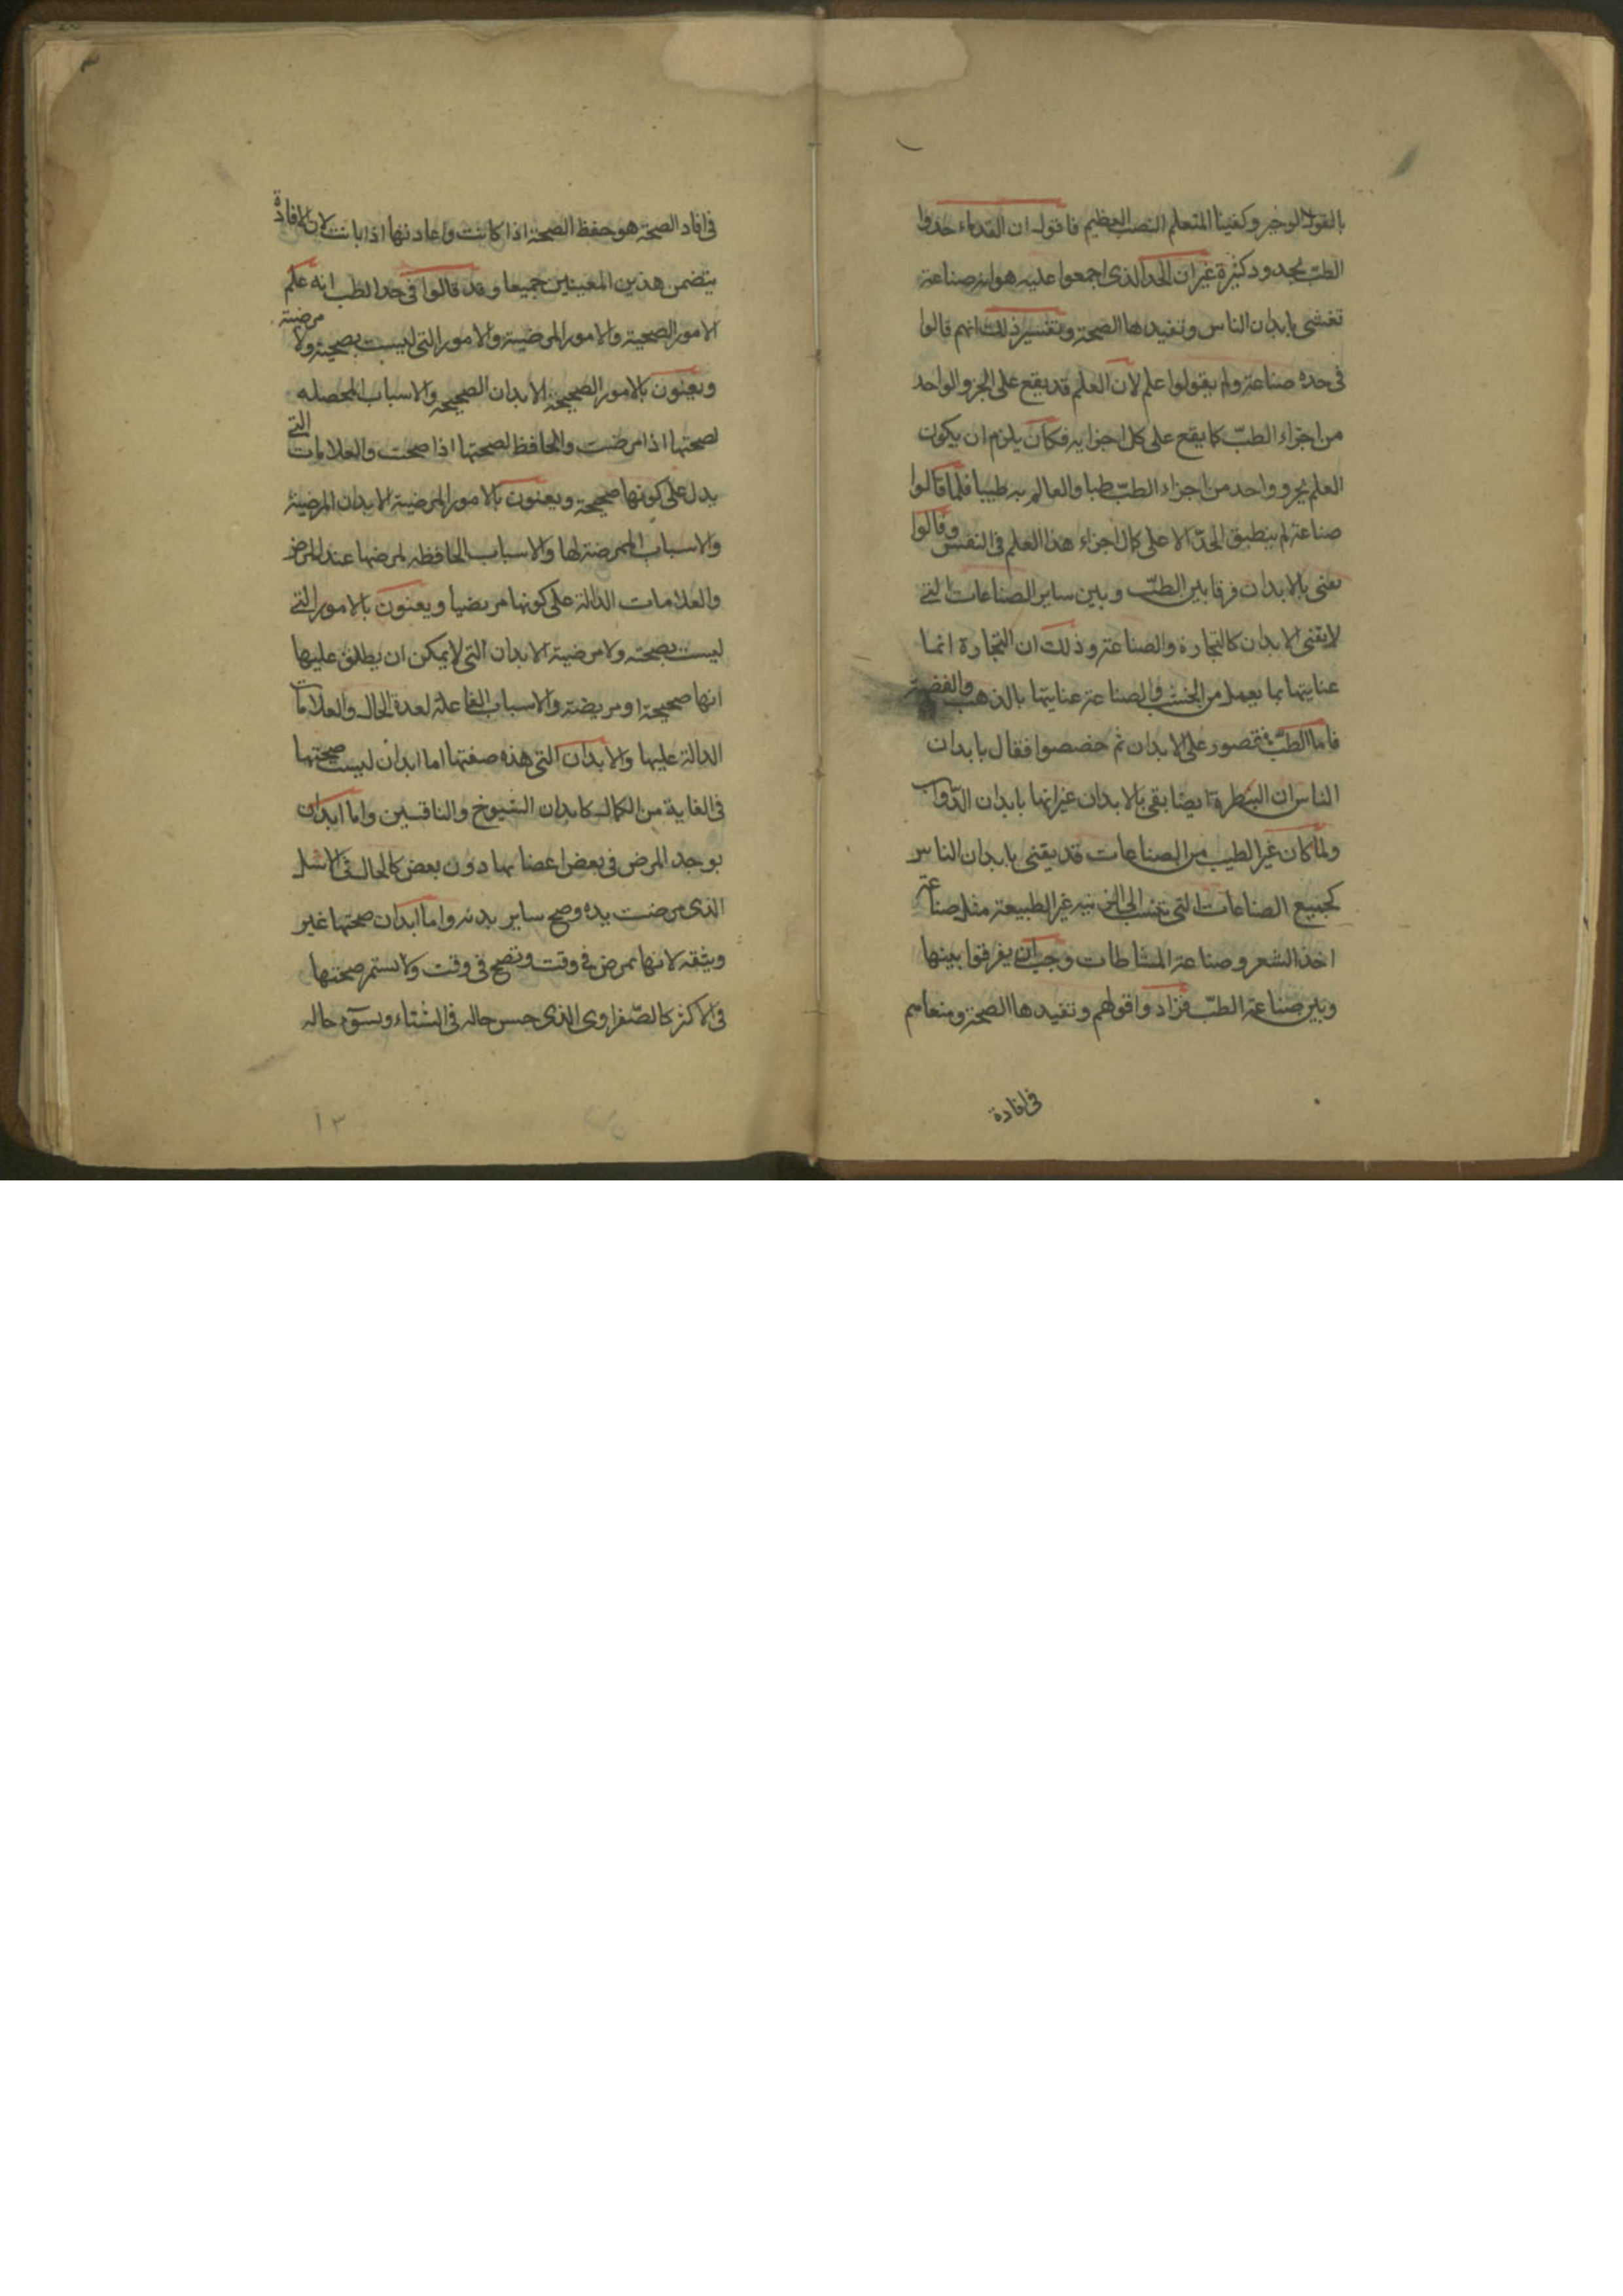 بالقول الوجيز وكفينا المتعلم النصب العظيم فاقول ان القدماء حدوا
الطب بحدود كثيرة غير ان الحد الذى اجمعوا عليه هو انه صناعة
تعنى بابدان الناس وتفيدها الصحة وتفسير ذلك انهم قالوا
فى حده صناعة ولم يقولوا علم لان العلم قد يقع على الجزو الواحد
من اجزاء الطب كما يقع على كل اجزايه فكان يلزم ان يكون
العلم بجزو واحد من اجزاء الطب طبا والعالم به طبيبا فلما قالوا
صناعة لم ينطبق الحد الا على كل اجزاء هذا العلم فى النفس وقالوا
تعنى بالابدان فرقا بين الطب وبين ساير الصناعات التى
لا يعنى الابدان كالتجارة والصناعة وذلك ان التجارة انما
عنايتها بما يعمل من الخشب والصناعة عنايتها بالذهب والفضة
فاما الطب فمقصور على الابدان ثم خصصوا فقال بابدان
الناس ان البيطرة ايضا يعنى بالابدان غير انها بابدان الدواب
ولما كان غير الطب من الصناعات قد يعنى بابدان الناس
كجميع الصناعات التى تنسب الى الزينة غير الطبيعة مثل صناعة
اخذ الشعر وصناعة المشاطات وجب ان يفرقوا بينها
وبين صناعة الطب فزادوا قولهم وتفيدها الصحة ومنعاهم
فى افادة
٣
فى افاد الصحة هو حفظ الصحة اذا كانت واعادتها اذا بانت لان الافادة
يتضمن هذين المعنيين جميعا وقد قالوا فى حد الطب انه علم
الامور الصحية والامور المرضية والامور التى ليست بصحية ولا مرضية
ويعنون بالامور الصحيحة الابدان الصحيحه والاسباب المحصله
لصحتها اذا مرضت والحافظ لصحتها اذا صحت والعلامات التى
يدل على كونها صحيحة ويعنون بالامور المرضية الابدان المرضية
والاسباب الممرضة لها والاسباب الحافظه لمرضها عند المرض
والعلامات الدالة على كونها مريضيا ويعنون بالامور التى
ليست بصحته ولا مرضية الابدان التى لا يمكن ان يطلق عليها
انها صحيحة او مريضة والاسباب الفاعلة لعدة الحال والعلامات
الدالة عليها والابدان التى هذه صفتها اما ابدان ليست صحتها
فى الغاية من الكمال كابدان الشيوخ والناقسين واما ابدان
يوجد المرض فى بعض اعضايها دون بعض كالحال فى الاشل
الذى مرضت يده وصح ساير بدنه واما ابدان صحتها غير
وثيقة لانها تمرض فى وقت وتصح فى وقت ولا يستمر صحتها
فى الاكثر كالصفراوى الذى حسن حاله فى الشتاء ويسوء حاله
١٣